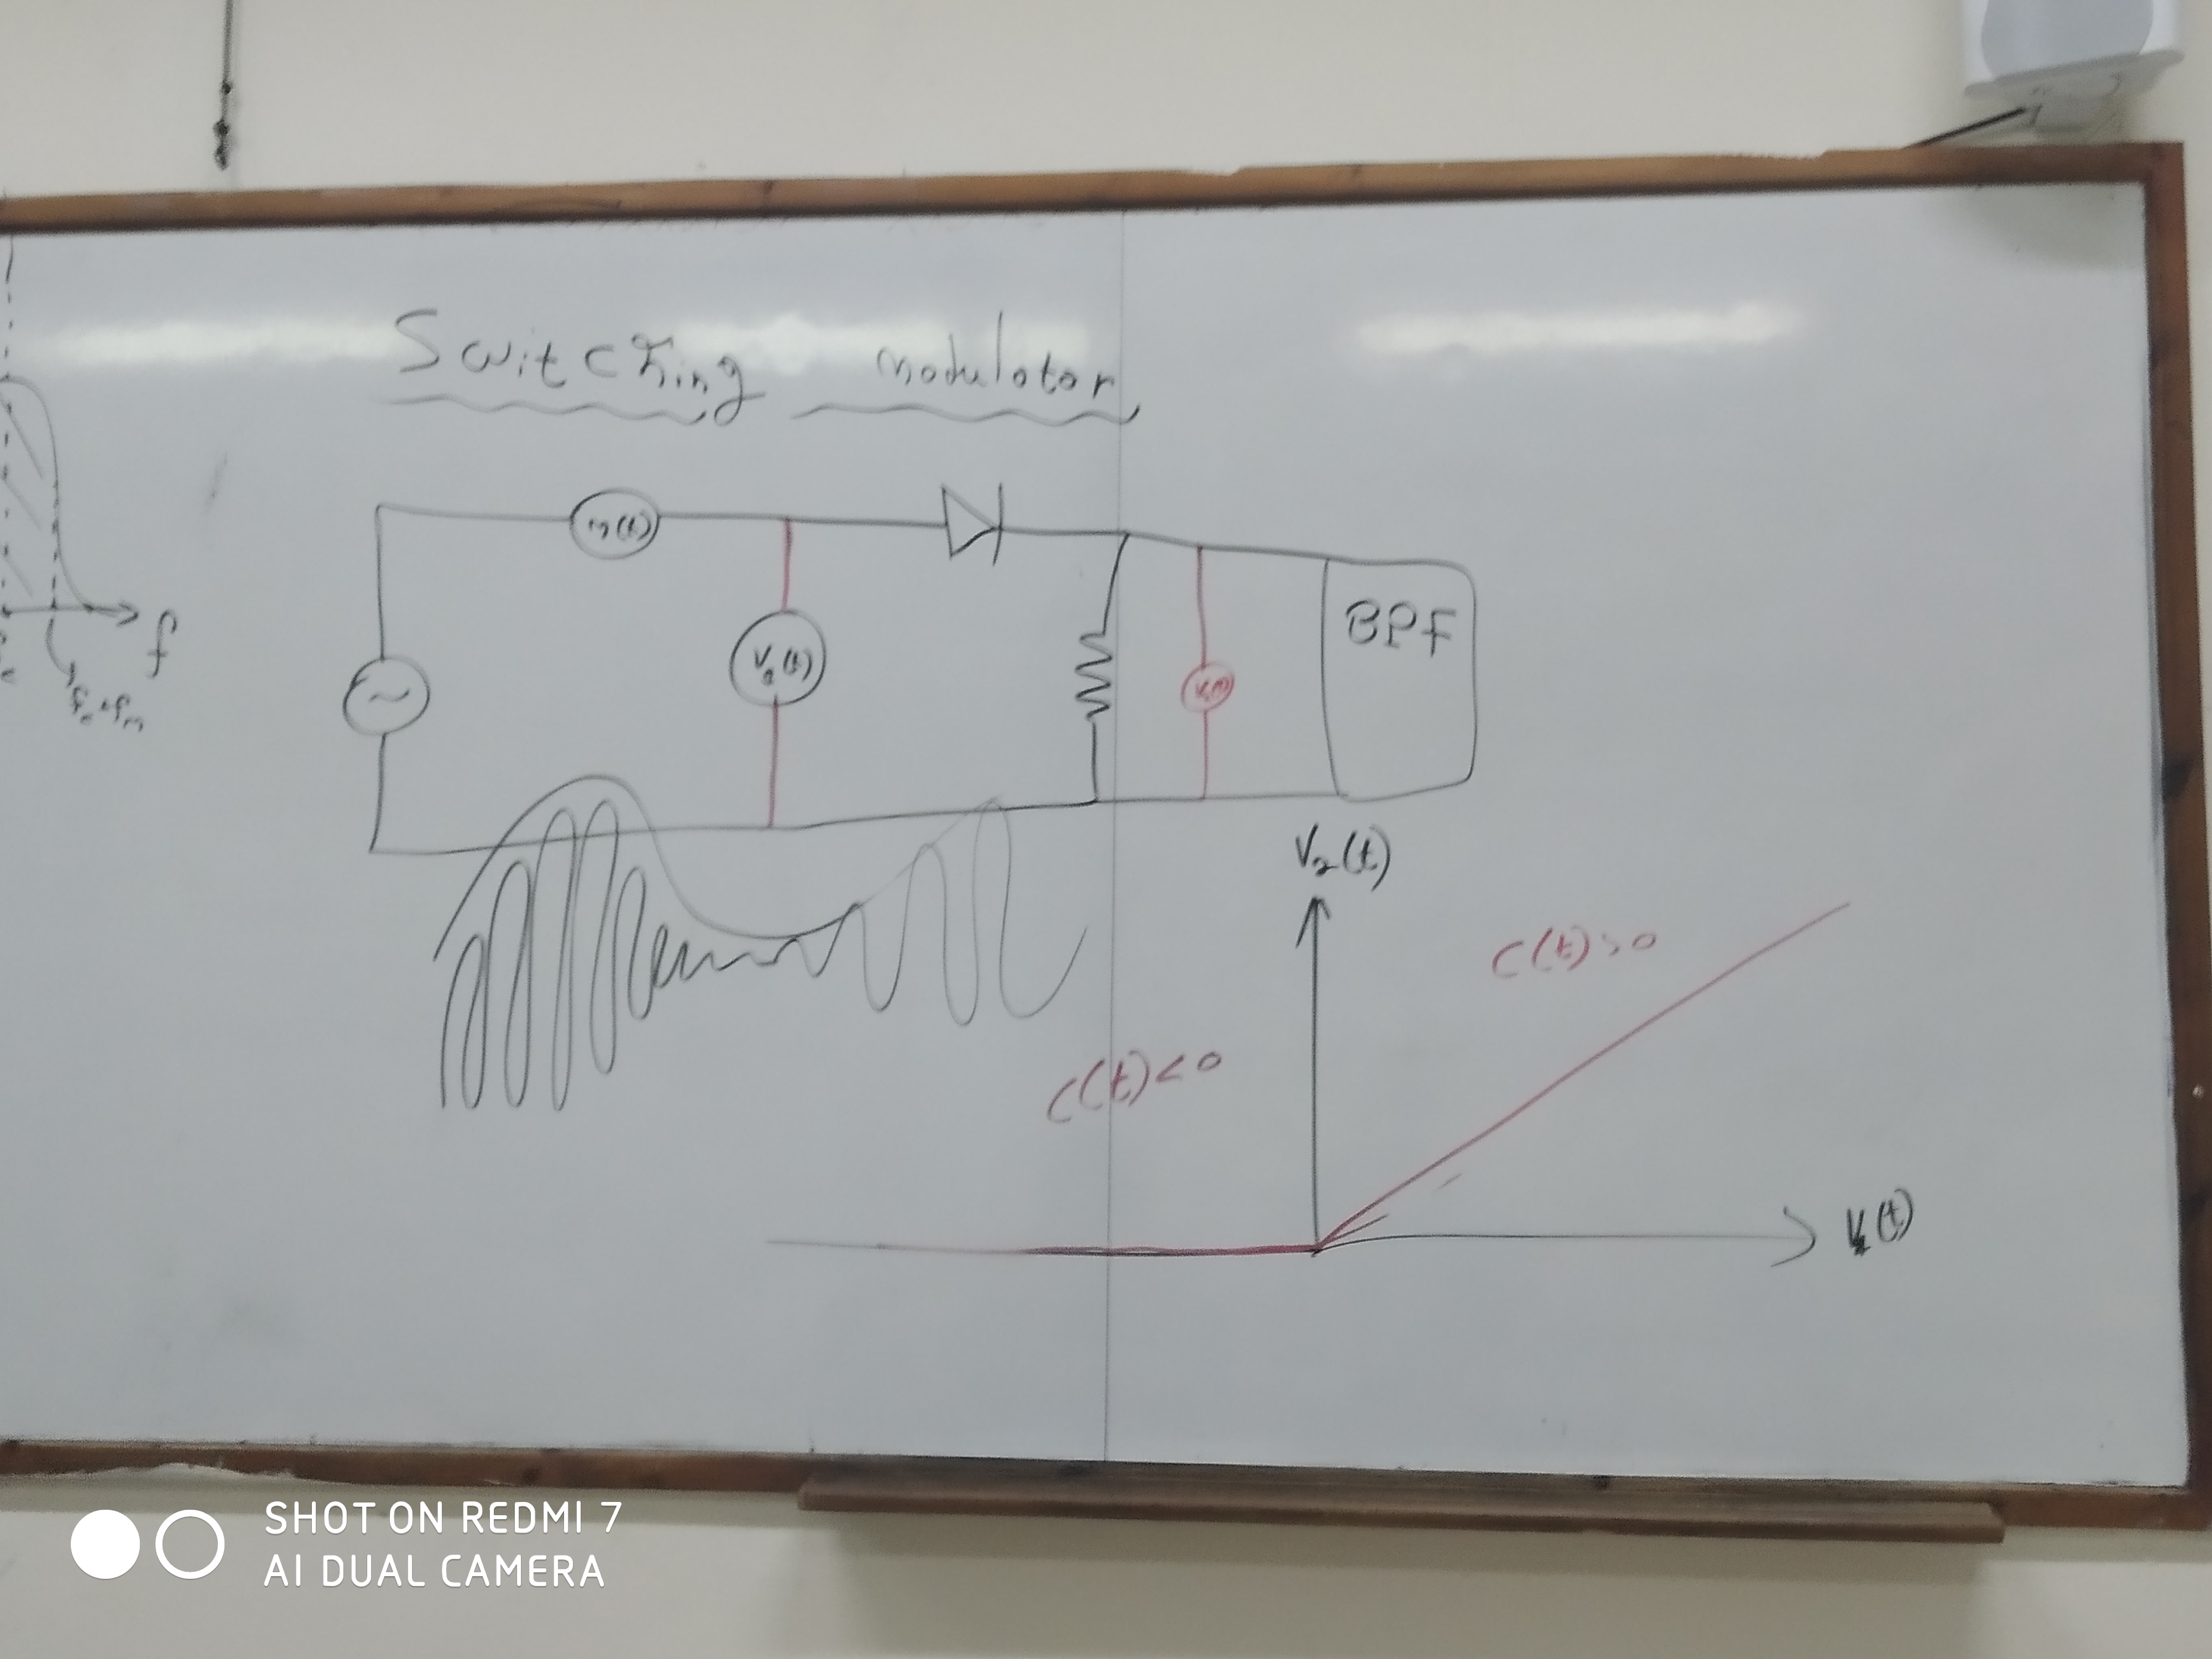 Switching modulator
m(t)
BPF
f
fc+fm
V2(t)
C(t)>0
C(t)<0
V1(t)
SHOT ON REDMI 7
AI DUAL CAMERA